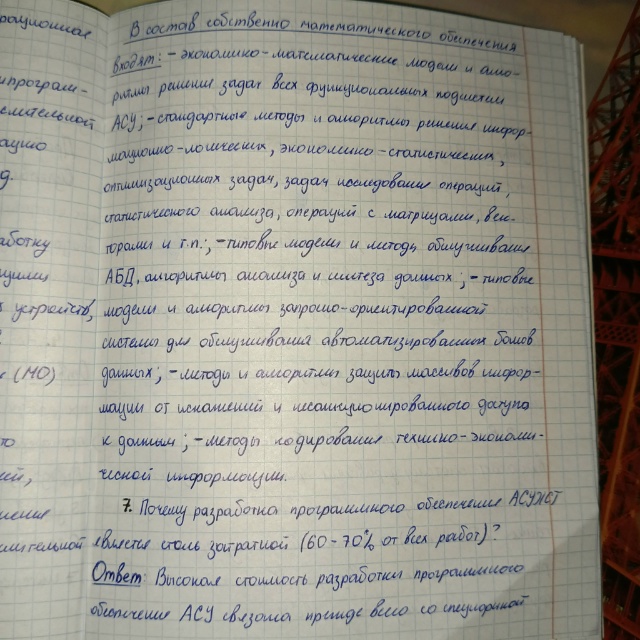 В состав собственно математического обеспечения
входят: - экономико-математические модели и алго-
ритмы решения задач всех функциональных подсистем
АСУ; - стандартные методы и алгоритмы решения инфор-
мационно-логических, экономико-статистических,
оптимизационных задач, задач исследования операций,
статистического анализа, операций с матрицами, век-
торами и т.п.; - типовые модели и методы обслуживания
АБД, алгоритмы анализа и синтеза данных; - типовые
модели и алгоритмы запросно-ориентированной
системы для обслуживания автоматизированных банков
данных; - методы и алгоритмы защиты массивов инфор-
мации от искажений и несанкционированного доступа
к данным; - методы кодирования технико-экономи-
ческой информации.
7. Почему разработка программного обеспечения АСУЖТ
является столь затратной (60-70% от всех работ)?
Ответ: Высокая стоимость разработки программного
обеспечения АСУ связана прежде всего со спецификой
рационная
программ-
ацию
д.
аботку
ющими
устройств,
(МО)